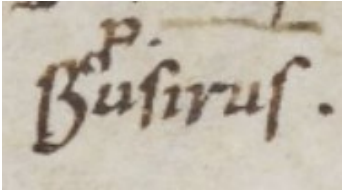 p.
Busirus.